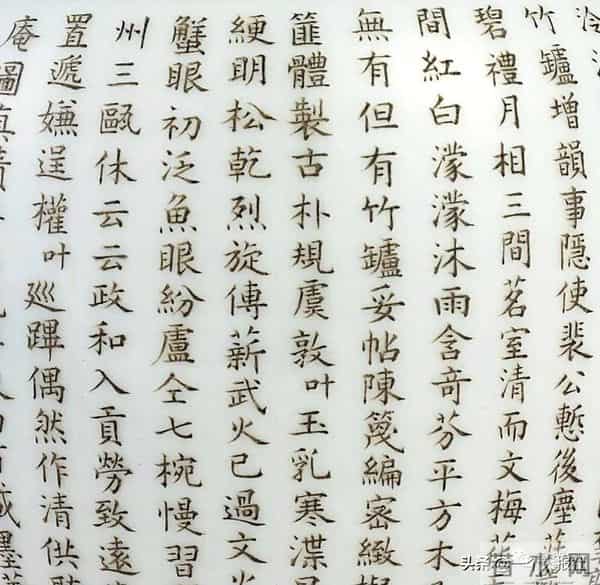 竹鑪增韻事隱使裴公慙後塵
碧禮月相三間茗室清而文梅
間紅白濛濛沐雨含竒芬平方木
無有但有竹鑪妥帖陳篾編密緻
篚體製古朴規虞敦叶玉乳寒渫
綆明松乾烈旋傳薪武火已過文火
蟹眼初泛魚眼紛盧仝七椀慢習
州三甌休云云政和入貢勞致遠
置遞嫌逞權叶巡蹕偶然作清供
庵圖真
头条